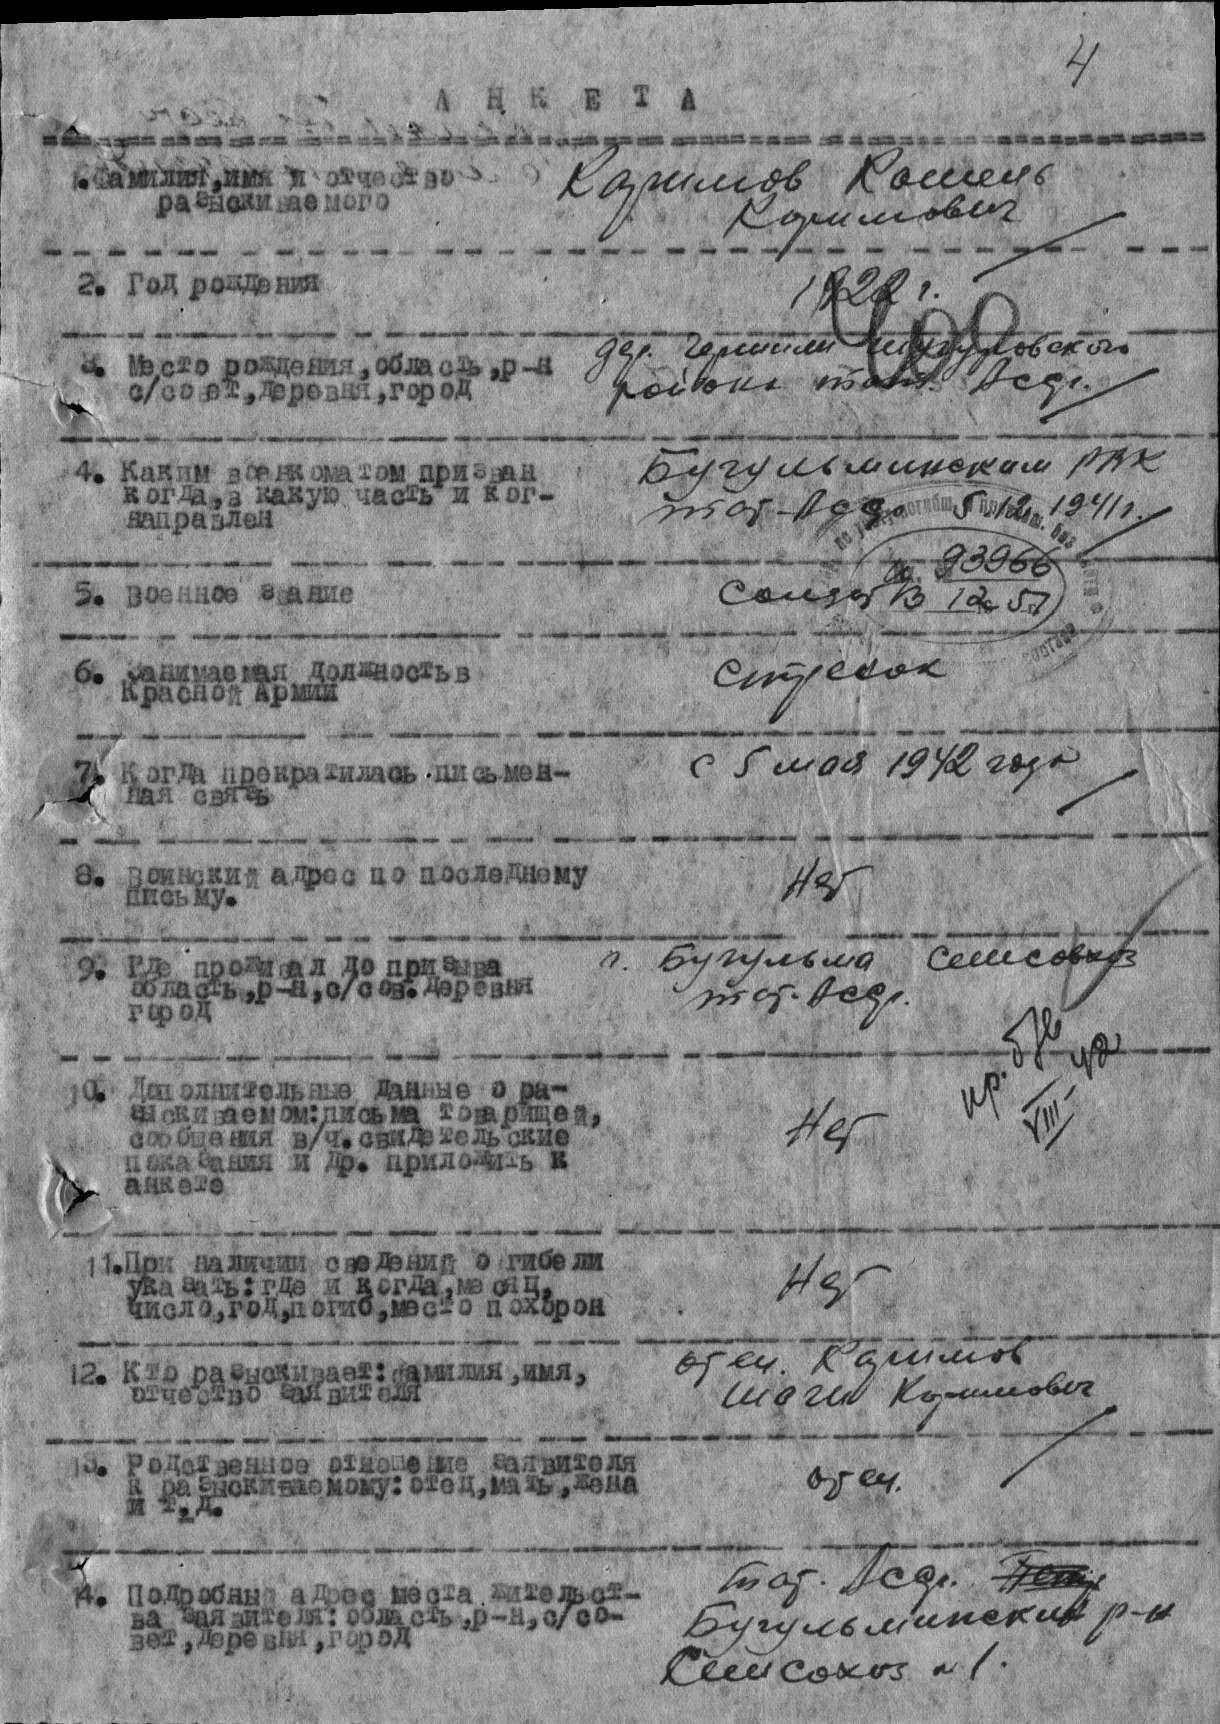 4
АНКЕТА
1. Фамилия, имя и отчество
разыскиваемого
Каримов Камиль
Каримович
2. Год рождения
1922 г.
3. Место рождения, область, р-н
с/совет, деревня, город
дер. Шугуровского
района тат. Асср.
4. Каким военкоматом призван
когда, в какую часть и ког-
направлен
Бугульминским РВК
тат-Асср. 5 12 1941 г.
93966
5. Военное звание
Солдат
13 12 57
6. Занимаемая должность в
Красной Армии
стрелок
7. Когда прекратилась письмен-
ная связь
с 5 мая 1942 года
8. Воинский адрес по последнему
письму.
Нет
9. Где проживал до призыва
область, р-н, с/сов. деревня
город
г. Бугульма Семсовхоз
тат. Асср.
пр. 42
VIII
10. Дополнительные данные о ра-
зыскиваемом: письма товарищей,
сообщения в/ч. свидетельские
показания и др. приложить к
анкете
Нет
11. При наличии сведений о гибели
указать: где и когда, месяц,
число, год, погиб, место похорон
Нет
12. Кто разыскивает: фамилия, имя,
отчество заявителя
отец. Каримов
Шаги Каримович
13. Родственное отношение заявителя
к разыскиваемому: отец, мать, жена
и т.д.
отец.
14. Подробный адрес места жительст-
ва заявителя: область, р-н, с/со-
вет, деревня, город
тат. Асср.
Бугульминский р-н
Семсовхоз №1.